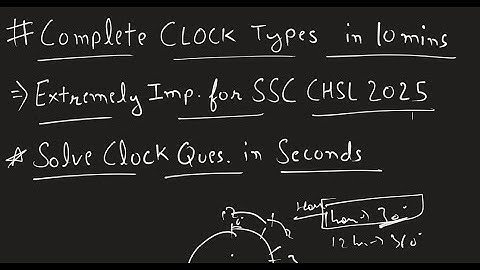 # Complete Clock Types in 10 mins
=> Extremely Imp. for SSC CHSL 2025
* Solve Clock Ques. in Seconds
12
1
Hour
1 hour → 30°
12 hr → 360°